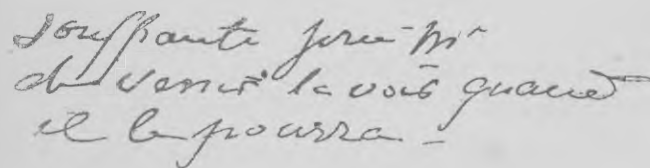 souffrante prie Mr
de venir la voir quand
il le pourra –